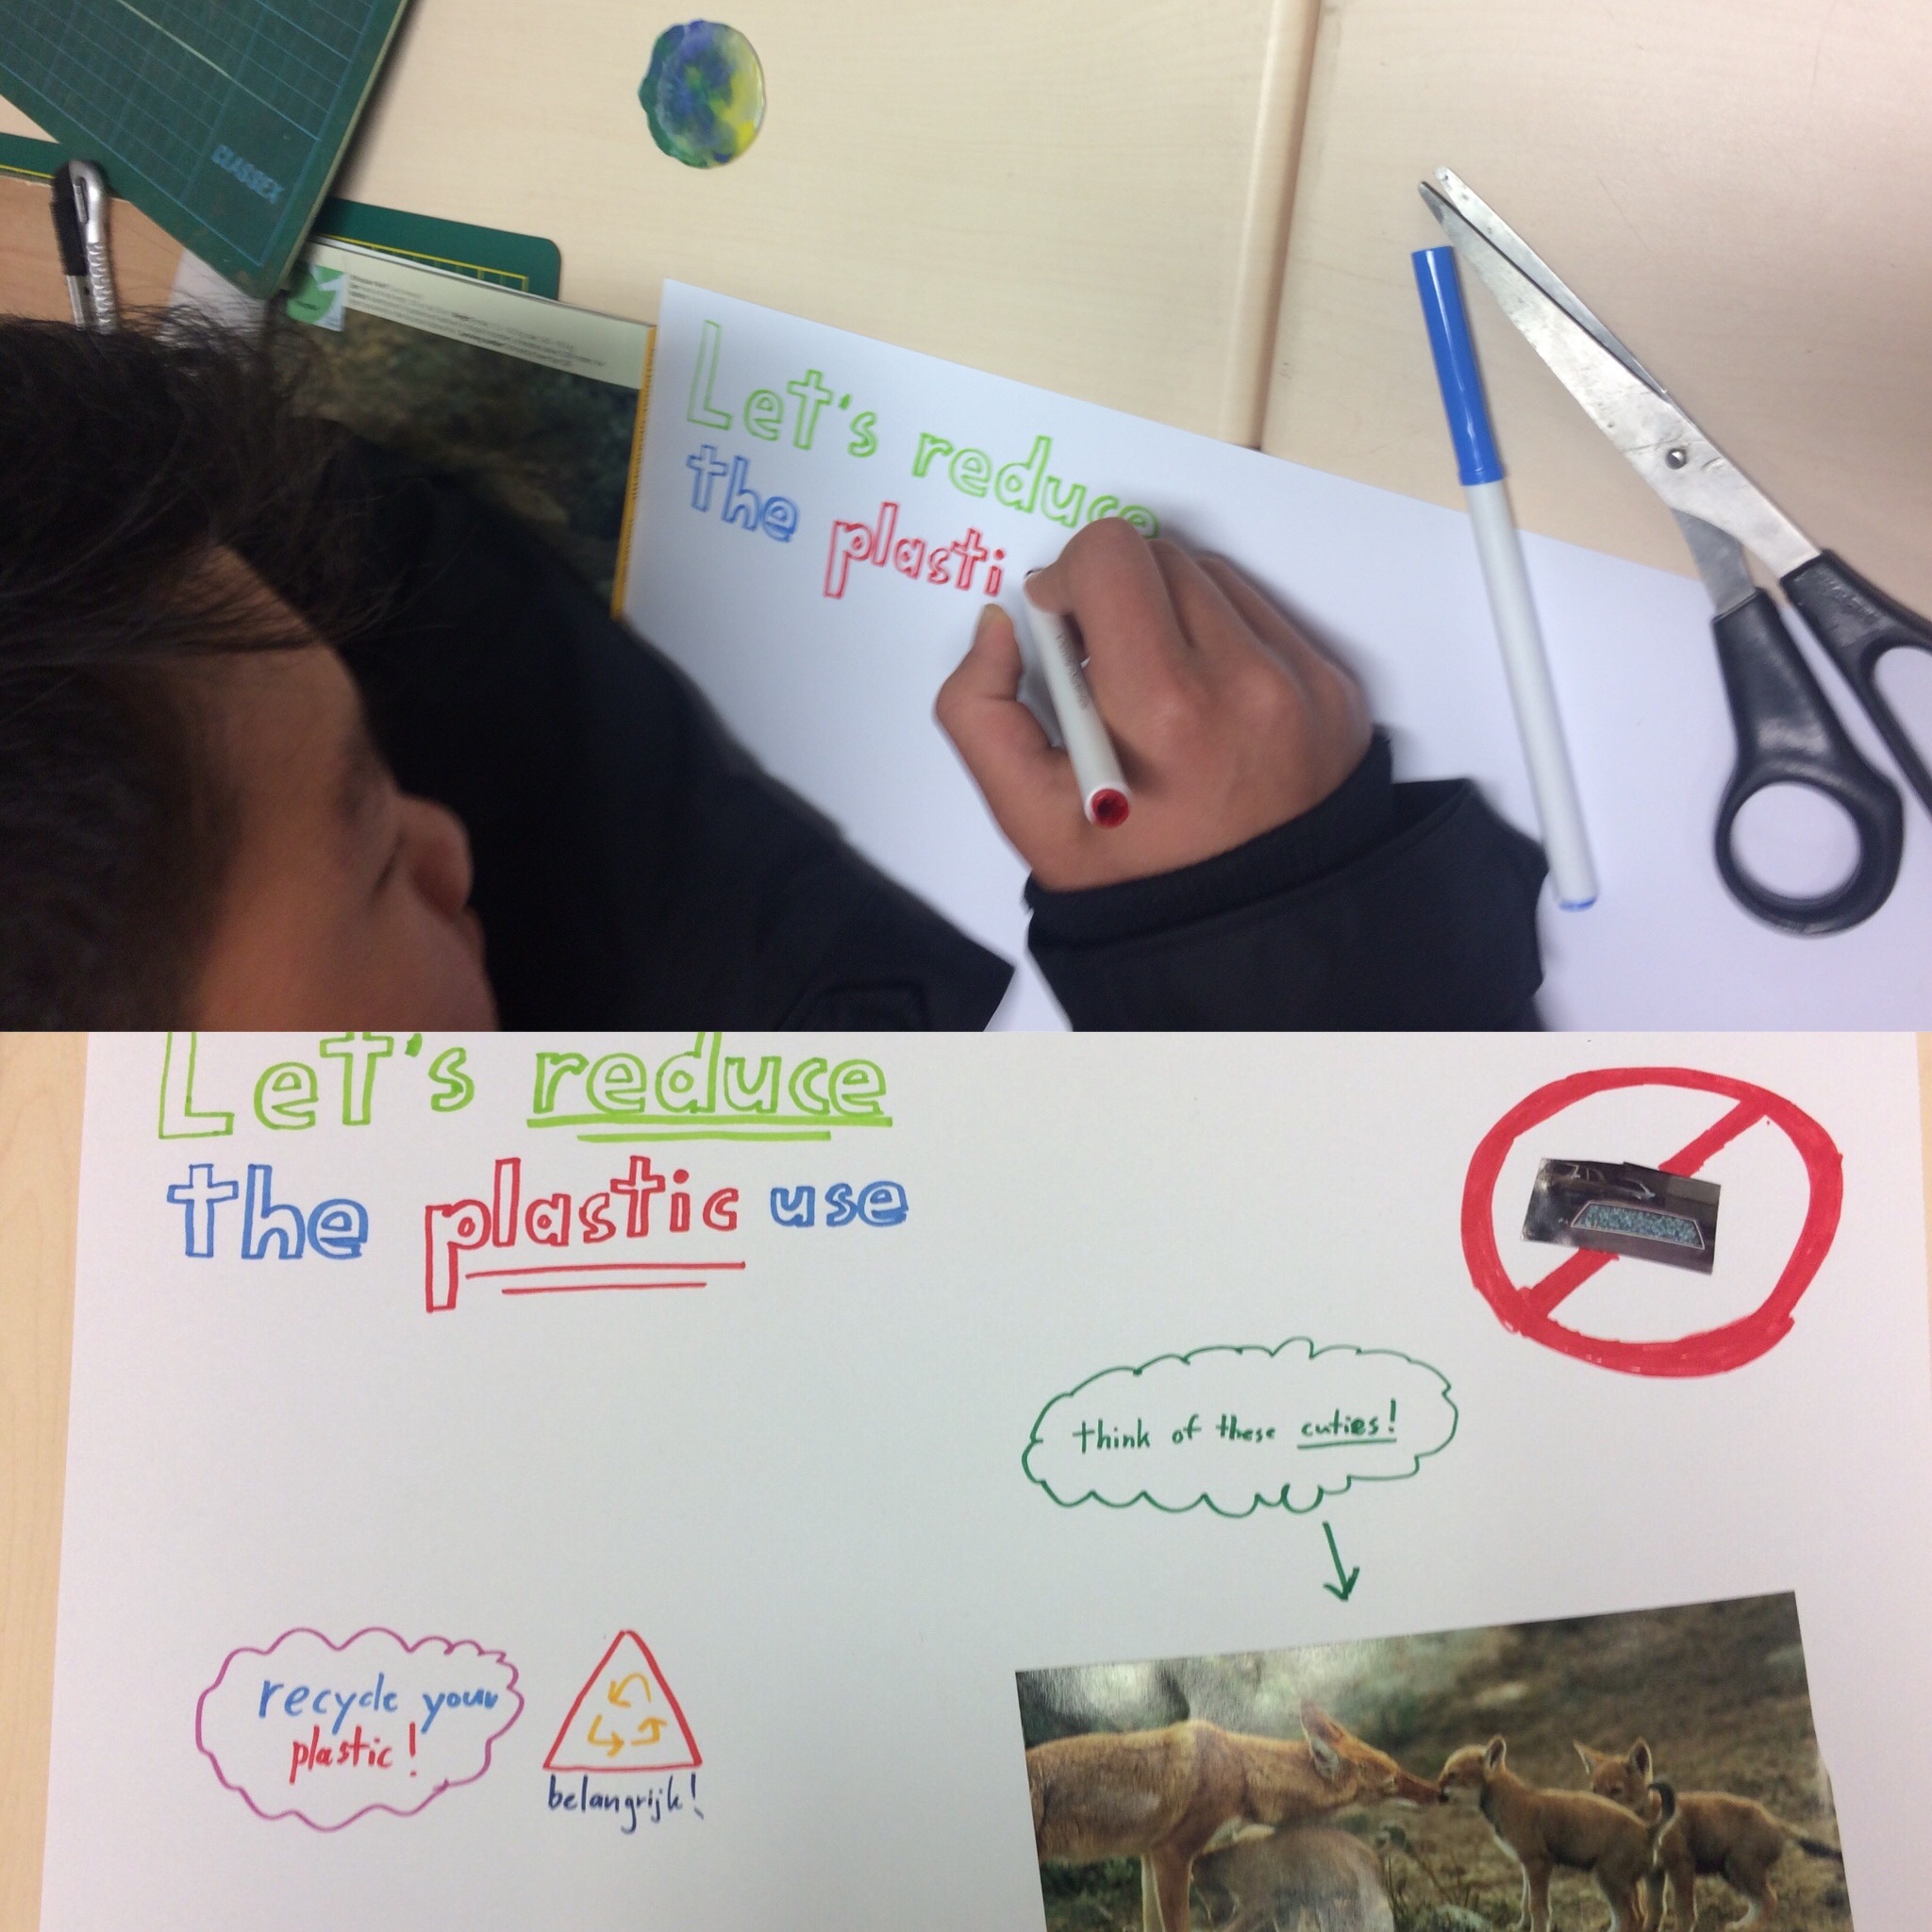 CLASSEX
Let's reduce
the plasti
Let's reduce
the plastic use
think of these cuties!
recycle your
plastic!
belangrijk!